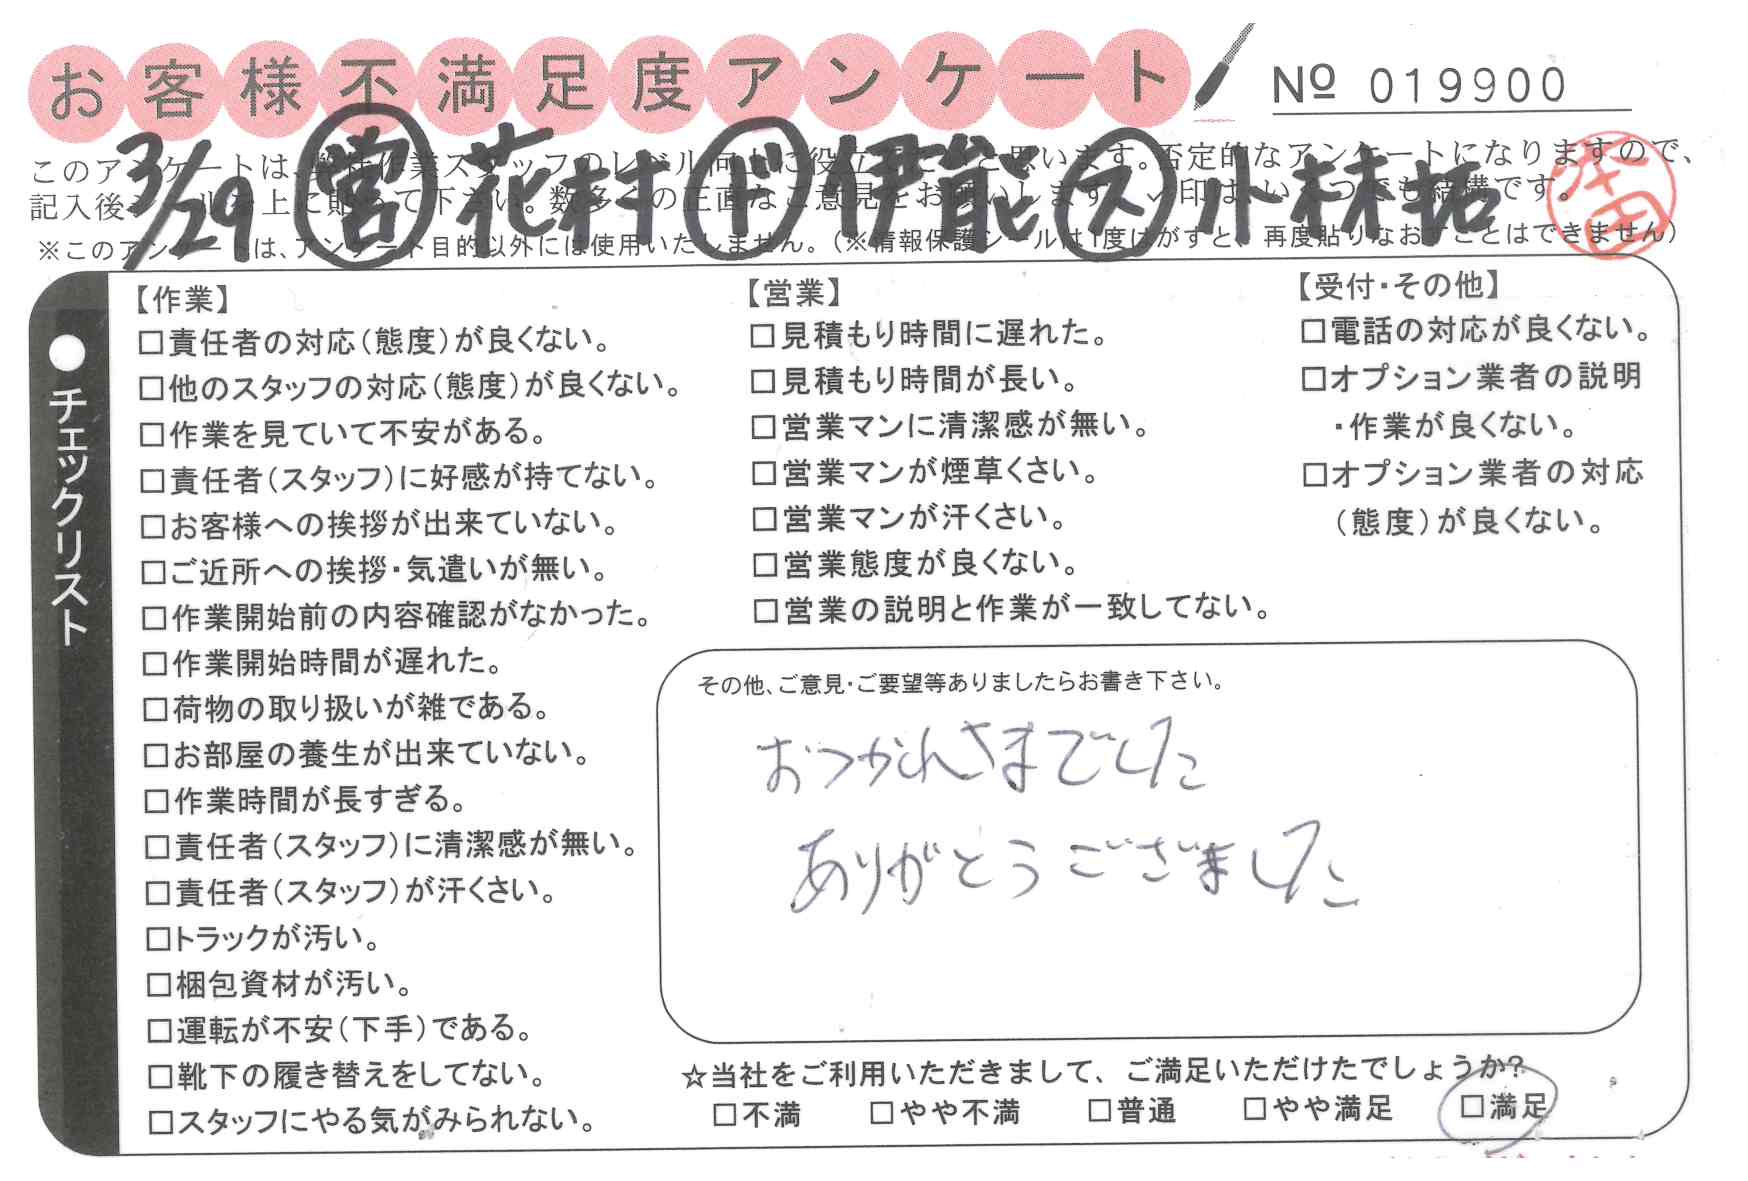 お客様不満足度アンケート
№ 019900
3/29 ㊢ 花村 ド 伊能 ス 小林拓
このアンケートは、弊社作業スタッフのレベル向上に役立てたいと思います。否定的なアンケートになりますので、
記入後シールを上に貼って下さい。数多くの正直なご意見をお願いします。✓印は、いくつでも結構です。
※このアンケートは、アンケート目的以外には使用いたしません。(※情報保護シールは1度はがすと、再度貼りなおすことはできません)
●チェックリスト
【作業】
□責任者の対応(態度)が良くない。
□他のスタッフの対応(態度)が良くない。
□作業を見ていて不安がある。
□責任者(スタッフ)に好感が持てない。
□お客様への挨拶が出来ていない。
□ご近所への挨拶・気遣いが無い。
□作業開始前の内容確認がなかった。
□作業開始時間が遅れた。
□荷物の取り扱いが雑である。
□お部屋の養生が出来ていない。
□作業時間が長すぎる。
□責任者(スタッフ)に清潔感が無い。
□責任者(スタッフ)が汗くさい。
□トラックが汚い。
□梱包資材が汚い。
□運転が不安(下手)である。
□靴下の履き替えをしてない。
□スタッフにやる気がみられない。
【営業】
□見積もり時間に遅れた。
□見積もり時間が長い。
□営業マンに清潔感が無い。
□営業マンが煙草くさい。
□営業マンが汗くさい。
□営業態度が良くない。
□営業の説明と作業が一致してない。
【受付・その他】
□電話の対応が良くない。
□オプション業者の説明
・作業が良くない。
□オプション業者の対応
(態度)が良くない。
その他、ご意見・ご要望等ありましたらお書き下さい。
おつかれさまでした
ありがとうございました
☆当社をご利用いただきまして、ご満足いただけたでしょうか?
□不満 □やや不満 □普通 □やや満足 □満足